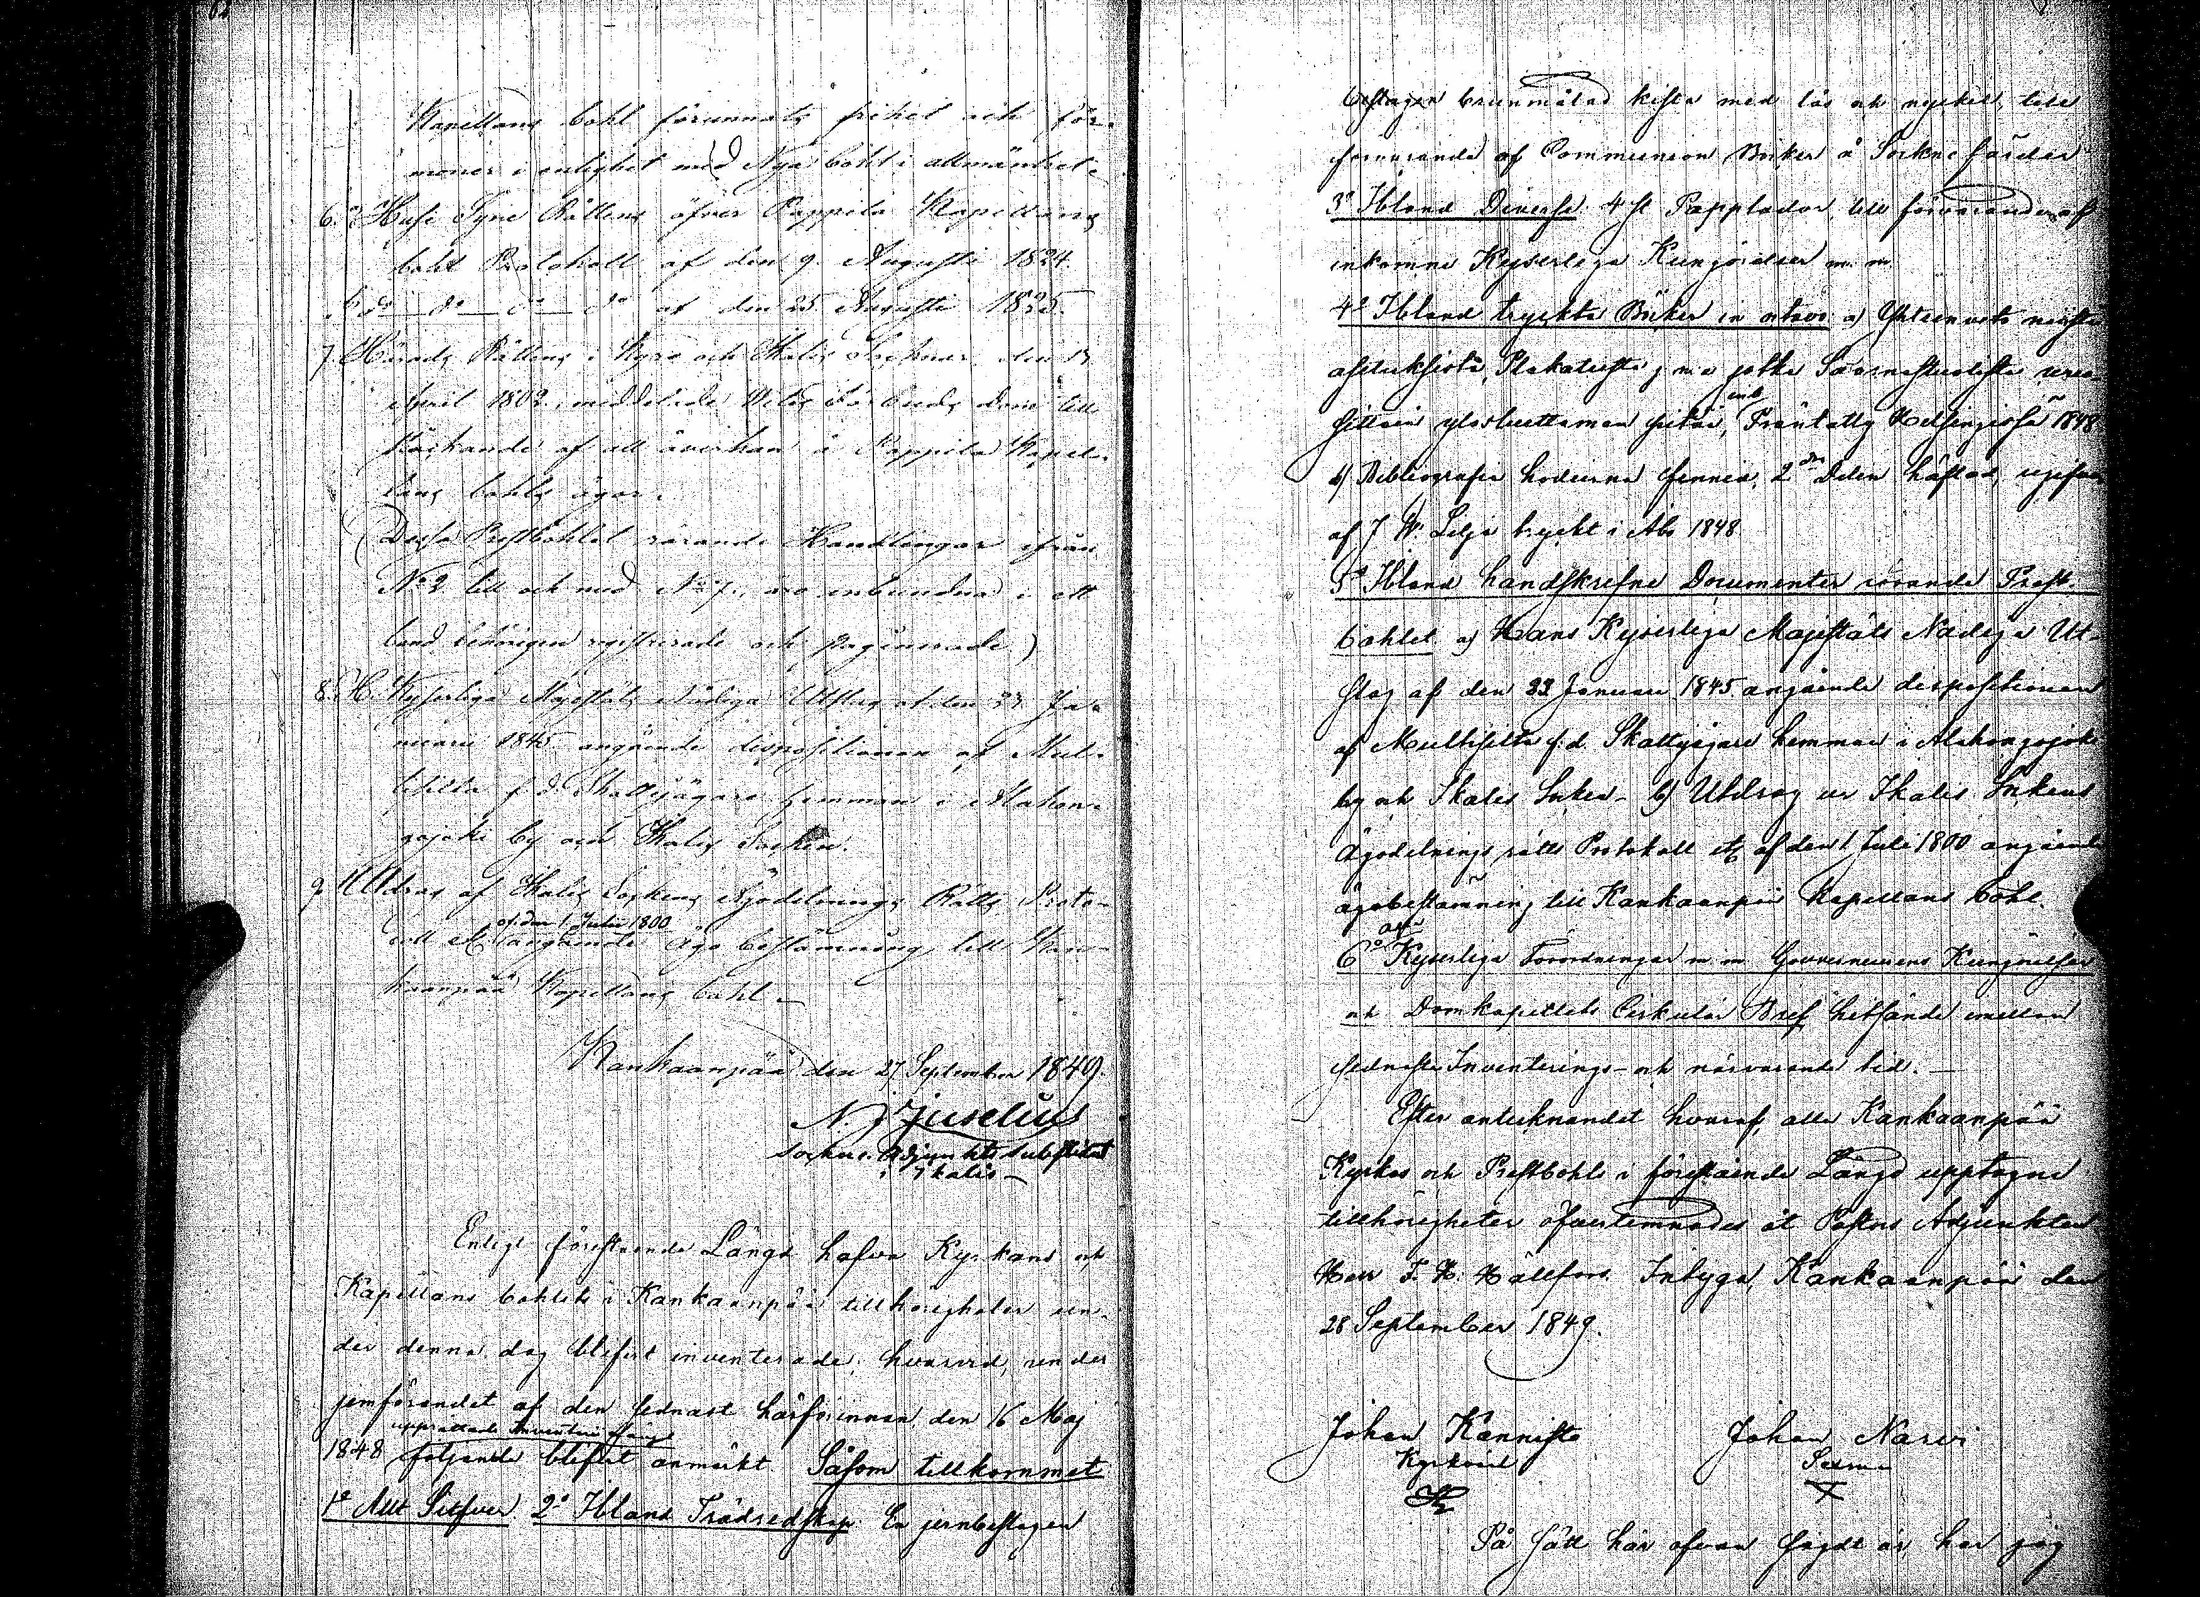 Kapellans bohl förunnats frihet och för-
moner i enlighet med Nya bohl i allmänhet.
6. Huse Syne Rättens öfver Pappila Kapellans
bohl Protokoll af den 9. Augusti 1824.
do do do af den 25 Augusti 1835.
7. Härads Rättens i Kyro och Ikalis Socknar den
April 1802 meddelade Vites förbuds dom till
af all åverkan å Pappila Kapel-
lans bohls ägor.
(Dessa Prestbohlet rörande Handlingar ifrån
No 2 till och med No 7, äro inbundna i ett
band behörigen registrerade och paginerade)
8. H. Kejserliga Majestäts Nådiga Utslag af den 23 Ja-
nuarii 1845 angående dispositionen af Mul-
tisilta f. d. Skattejägare hemman i Alahon-
gojoki by och Ikalis Socken.
9 Utdrag af Ikalis Sockens Ägodelnings Rätts Proto-
af den 1 Julii 1800
coll angående ägo bestämning till Kan-
kaanpää Kapellans bohl.
Kankaanpää den 27 September 1849.
N. J. Juselius
Sockne Adjunkts substitut
i Ikalis
Enligt förestående Längd hafva Kyrkans och
Kapellans bohlets i Kankaanpää tillhörigheter un-
der denna dag blifvit inventerade, hvarvid, under
jemförandet af den sednast härförinnan den 16 Maj
upprättade Inventarii
1848 följande blifvit anmärkt. Såsom tillkommet
1o Allt Silfver 2o Ibland Trädredskap En jernbeslagen
beslagen brunmålad kista med lås och nyckel, till
förvarande af Communion Böcker å Sockne färder
3o Ibland Diverse. 4 st Papplador till förvarande af
inkomne Kejserliga Kungörelser m. m.
4o Ibland tryckta Böcker in octavo a)
asetuksista, Plakateista j. n. e. jotka
ylösluettaman pitää, Präntätty Helsingissä 1848
b) Bibliografia hodierna Fennica, 2dra Delen häftad, utgifven
af J. W. Lilja tryckt i Åbo 1848.
5o Ibland handskrefne Documenter rörande Prest-
bohlet a) Hans Kejserliga Majestäts Nådiga Ut-
slag af den 23 Januari 1845 angående dispositionen
af Multisilta f. d. Skattejägare hemman i Alahongojoki
by och Ikalis Socken. b) Utdrag ur Ikalis Sockens
Ägodelnings rätts Protokoll af den 1 Juli 1800 angående
ägobestämning till Kankaanpää Kapellans bohl.
6o Kejserliga Förordningar m. m. Gouverneurens Kungörelser
och Domkapitlets Cirkulär Bref hitsände emellan
sednaste Inventerings- och närvarande tid.
Efter antecknandet hvaraf, alla Kankaanpää
Kyrkas och Prestbohls i förestående Längd upptagne
tillhörigheter öfverlemnades åt Pastors Adjunkten
Herr F. H. Hällfors. Intyga, Kankaanpää den
28 September 1849.
Johan Kannisto Johan Narvi
Kyrkvärd Sexman
På sätt här ofvan sagdt är, har jag